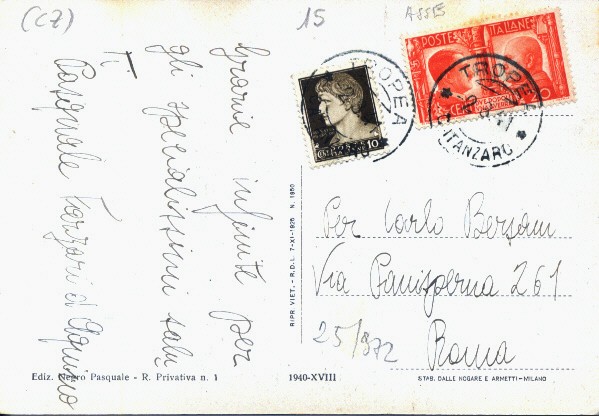 (CZ)
15
ASSE
Grazie infinite per
gli specialissimi saluti
Pasquale
POSTE ITALIANE
TROPEA
10
TROPEA
CATANZARO
Per Carlo Bersani
Via Panisperna 261
Roma
25/372
RIPR. VIET. - R.D.L. 7-XI-1925 N. 1950
Ediz. Negro Pasquale - R. Privativa n. 1
1940-XVIII
STAB. DALLE NOGARE E ARMETTI-MILANO